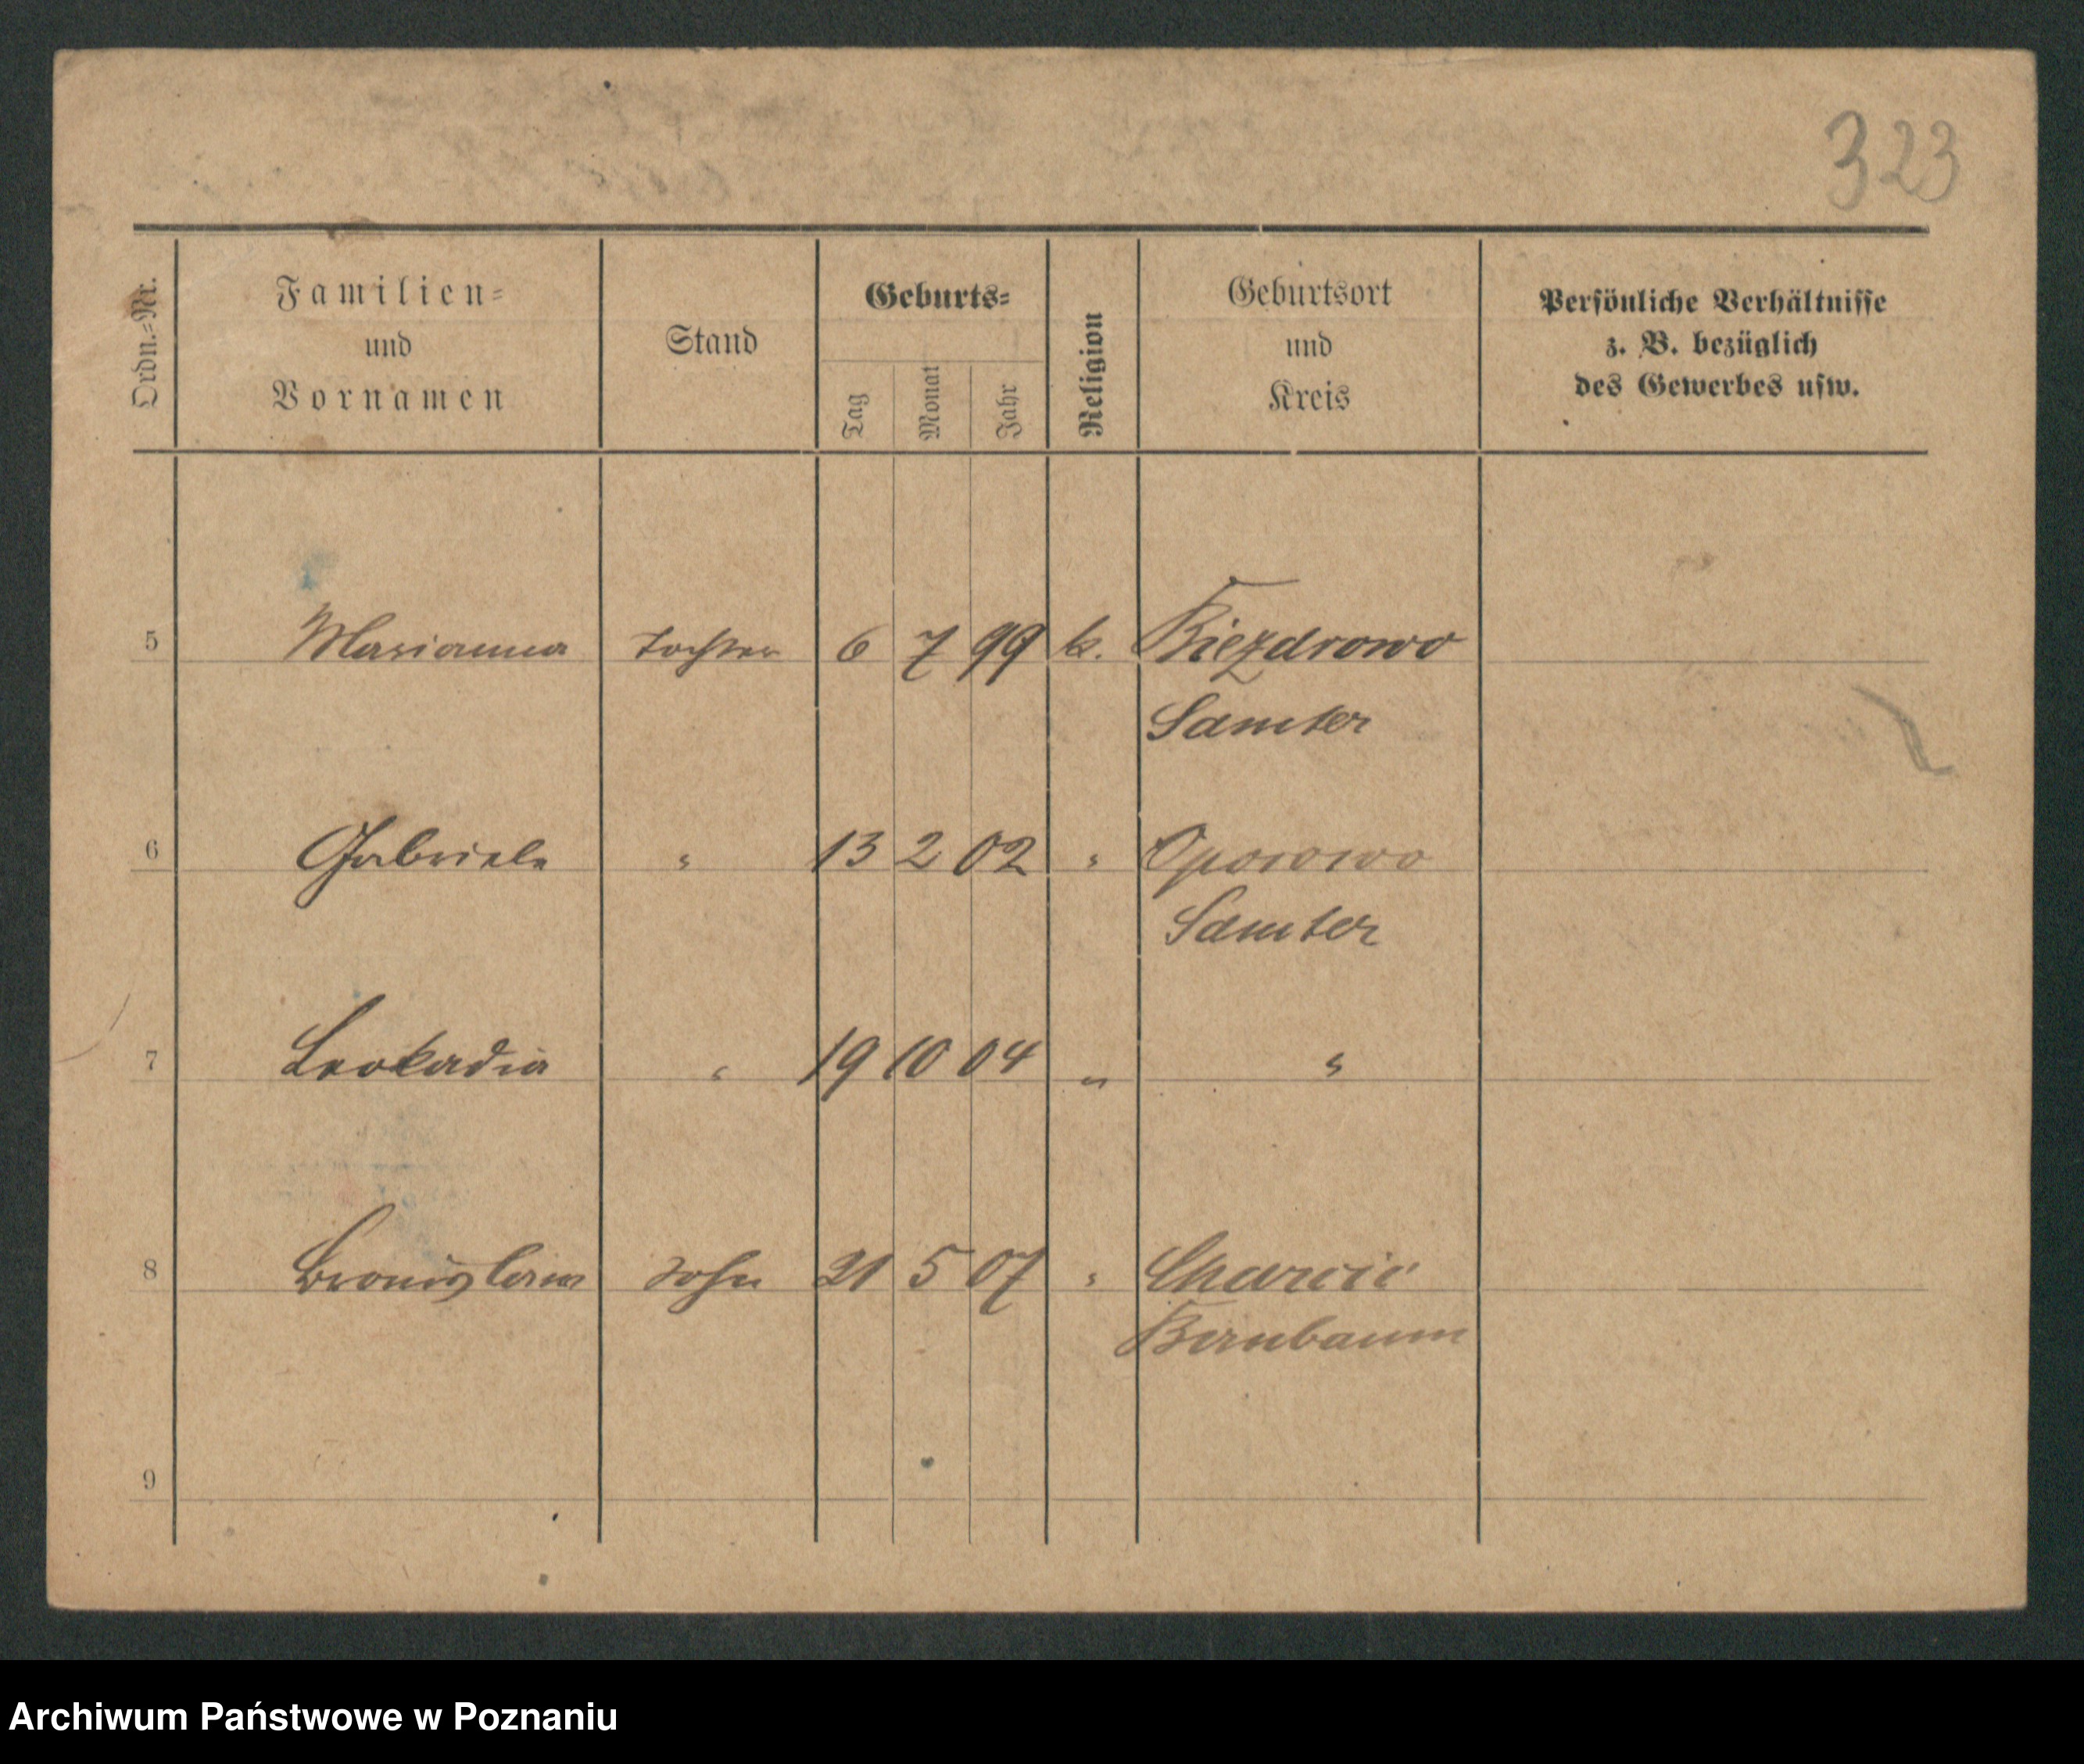 323
Ordn.=Nr.
Familien=
und
Vornamen
Stand
Geburts=
Tag
Monat
Jahr
Religion
Geburtsort
und
Kreis
Persönliche Verhältnisse
z. B. bezüglich
des Gewerbes usw.
5 Marianna Tochter 6 7 99 k. Biezdrowo
Samter
6 Gabriele " 13 2 02 " Oporowo
Samter
7 Leokadia " 19 10 04 " "
8 Bronislaw Sohn 21 5 07 " Charcic
Birnbaum
9
Archiwum Państwowe w Poznaniu